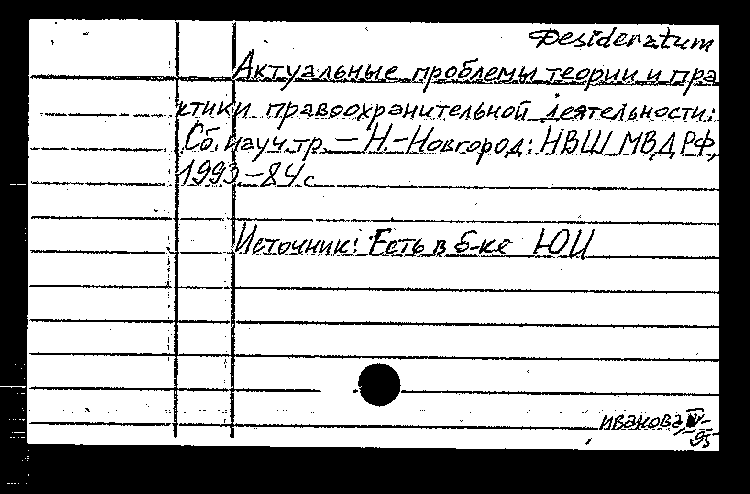 Desideratum
Актуальные проблемы теории и пра
ктики правоохранительной деятельности:
Сб. науч. тр. — Н.-Новгород: НВШ МВД РФ,
1993 – 84 с
Источник: Есть в б-ке ЮИ
иванова,
95